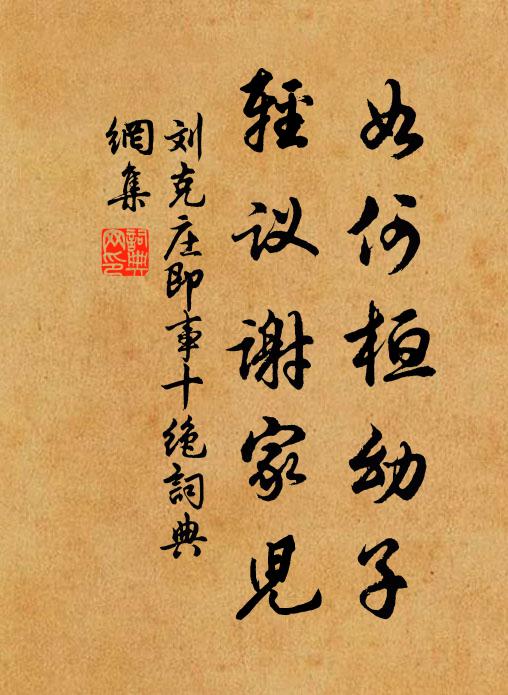 如何桓幼子
輕议谢家児
刘克庄即事十绝詞典
網集
詞典网印